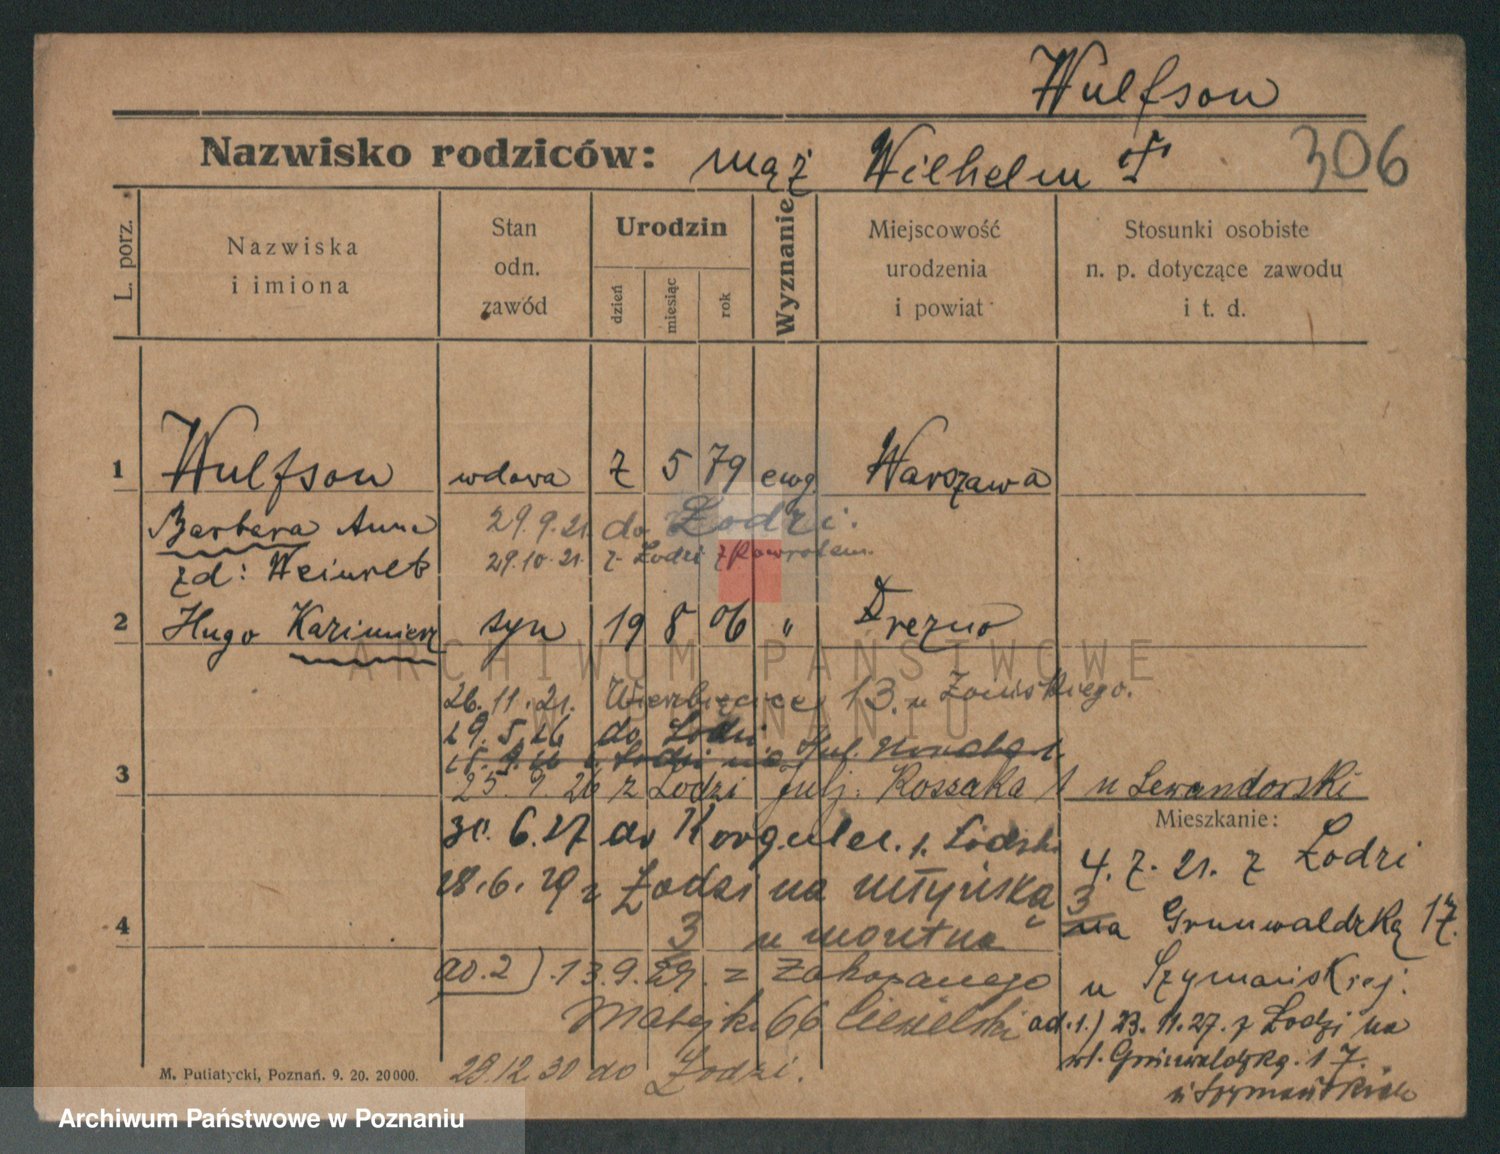 Wulfson
Nazwisko rodziców: mąż Wilhelm † 306
L. porz.
Nazwiska i imiona
Stan odn. zawód
Urodzin
dzień miesiąc rok
Wyznanie
Miejscowość urodzenia i powiat
Stosunki osobiste n. p. dotyczące zawodu i t. d.
1 Wulfson wdowa 7 5 79 ewg. Warszawa
Barbara Anna 29.9.21. do Łodzi.
zd: 29.10.21. z Łodzi z powrotem.
2 Hugo Kazimierz syn 19 8 06 " Drezno
26.11.21. Wierzbięcice 13. u
29.5.26 do Łodzi
3 25.9.26 z Łodzi Julj. Kossaka 1 u Lewandorski
Mieszkanie:
30.6.27 do Łódzki
4.7.21. z Łodzi
28.6.29 z Łodzi na Młyńską
3
na Grunwaldzką 17.
4 3 u
u Szymańskiej.
ad.2). 13.9.29. z Zakopanego
Matejki 66 Ciesielski
ad.1.) 23.11.27. z Łodzi na
ul. Grunwaldzką. 17.
29.12.30 do Łodzi.
M. Putiatycki, Poznań. 9. 20. 20 000.
ARCHIWUM PAŃSTWOWE
W POZNANIU
Archiwum Państwowe w Poznaniu